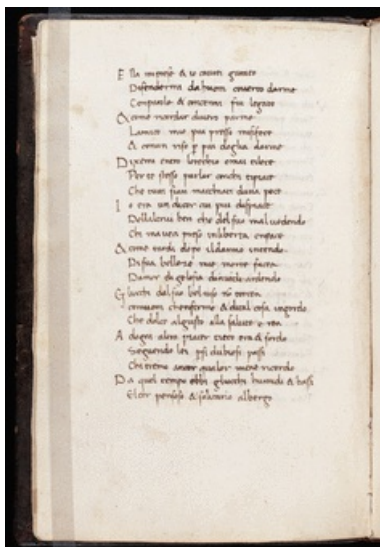 Ella mi prese & io ch auri giurato
Difendermi da huom coverto darme
Con parole & con cenni fui legato
& come ricordar di vero parme
Lamico mio piu presso mi si fece
& con un riso p piu doglia darme
Dixemi entro lorecchio omai ti lece
Per te stesso parlar con chi ti piace
Che tutti siam macchiati duna pece
Io era un di color cui piu dispiace
Dellaltrui ben che del suo mal vedendo
Chi mavea preso in liberta en pace
& come tardi dopo il danno intendo
Di sua belleze mia morte facea
Damor di gelosia dinvidia ardendo
Gliocchi dal suo bel viso nō torcea
come huom che infermo & di tal cosa ingordo
Che dolce al gusto alla salute e rea
A dogni altro piacer cieco era & sordo
Seguendo lei p si dubiosi passi
Chi tremo ancor qualor mene ricordo
Da quel tempo ebbi gliocchi humidi & bassi
El cor pensoso & solitario albergo